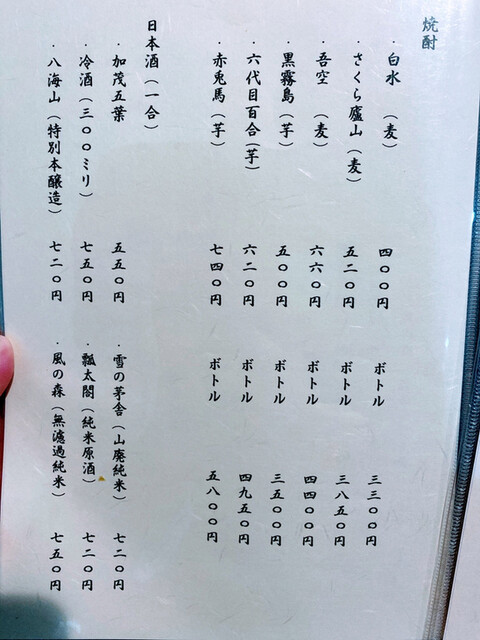 焼酎
・白水 （麦） 四〇〇円 ボトル 三三〇〇円
・さくら廬山（麦） 五二〇円 ボトル 三八五〇円
・吾空 （麦） 六六〇円 ボトル 四四〇〇円
・黒霧島（芋） 五〇〇円 ボトル 三五〇〇円
・六代目百合（芋） 六二〇円 ボトル 四九五〇円
・赤兎馬（芋） 七四〇円 ボトル 五八〇〇円
日本酒（一合）
・加茂五葉 五五〇円 ・雪の茅舎（山廃純米） 七二〇円
・冷酒（三〇〇ミリ） 七五〇円 ・瓢太閤（純米原酒） 七二〇円
・八海山（特別本醸造） 七二〇円 ・風の森（無濾過純米） 七五〇円